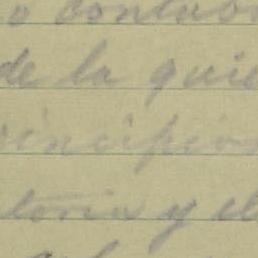 o contab
de la quie
rincipio
toria y el